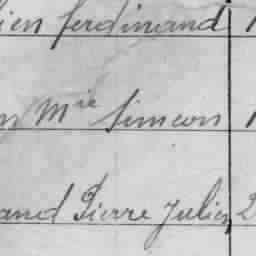 ien ferdinand 1
n Mie Simeon 1
and Pierre Julien 2